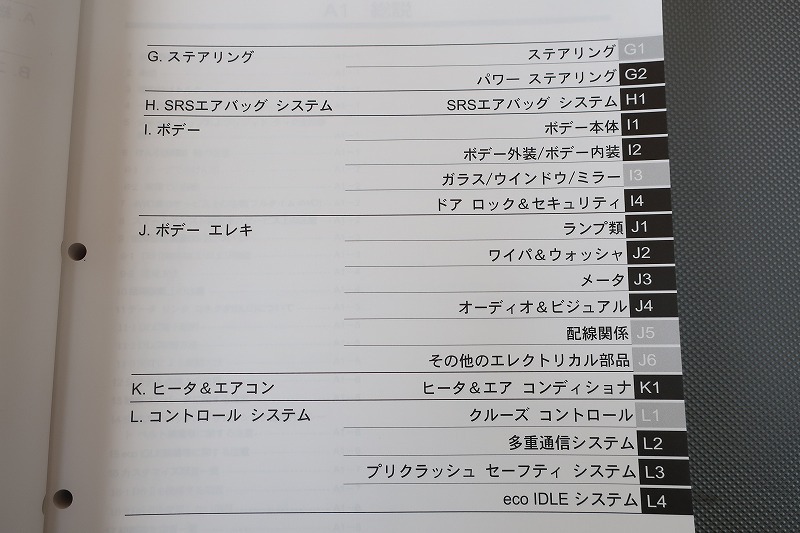 G. ステアリング ステアリング G1
パワー ステアリング G2
H. SRSエアバッグ システム SRSエアバッグ システム H1
I. ボデー ボデー本体 I1
ボデー外装/ボデー内装 I2
ガラス/ウインドウ/ミラー I3
ドア ロック＆セキュリティ I4
J. ボデー エレキ ランプ類 J1
ワイパ＆ウォッシャ J2
メータ J3
オーディオ＆ビジュアル J4
配線関係 J5
その他のエレクトリカル部品 J6
K. ヒータ＆エアコン ヒータ＆エア コンディショナ K1
L. コントロール システム クルーズ コントロール L1
多重通信システム L2
プリクラッシュ セーフティ システム L3
eco IDLE システム L4